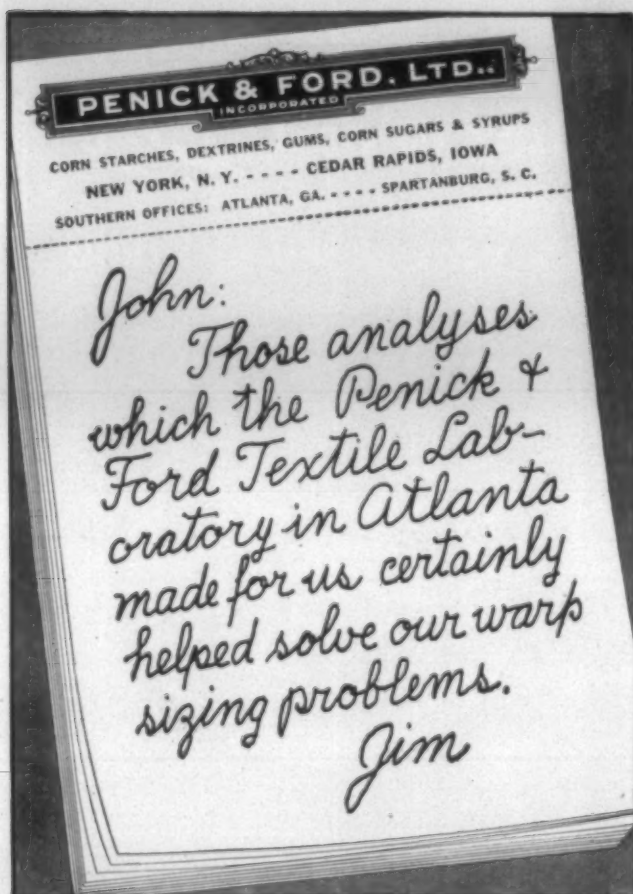 PENICK & FORD, LTD.
INCORPORATED
CORN STARCHES, DEXTRINES, GUMS, CORN SUGARS & SYRUPS
NEW YORK, N. Y. - - - - CEDAR RAPIDS, IOWA
SOUTHERN OFFICES: ATLANTA, GA. - - - - SPARTANBURG, S. C.
John:
Those analyses
which the Penick &
Ford Textile Lab-
oratory in Atlanta
made for us certainly
helped solve our warp
sizing problems.
Jim